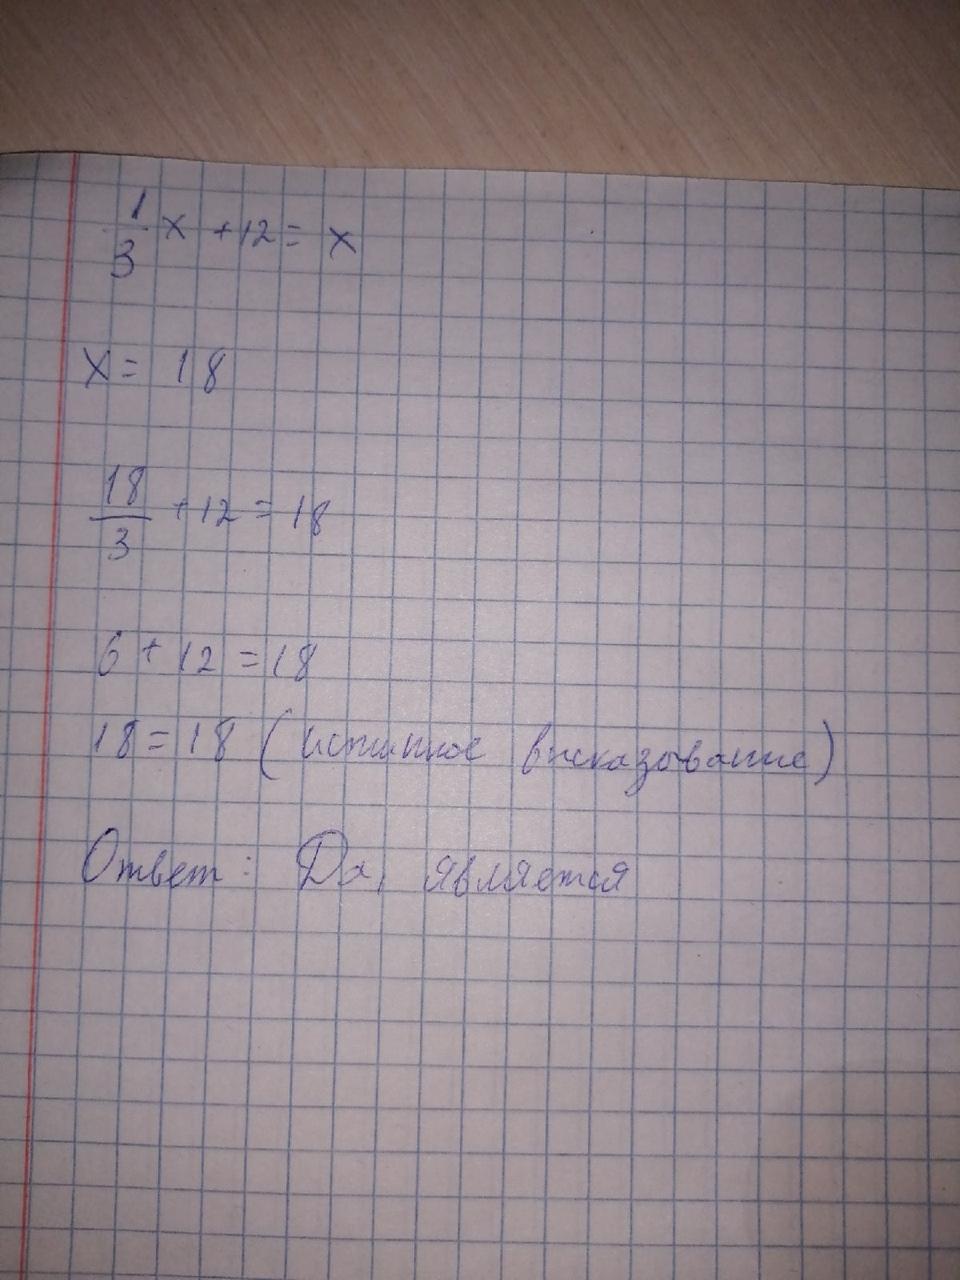 1/3 x + 12 = x
x = 18
18/3 + 12 = 18
6 + 12 = 18
18 = 18 (истинное висказование)
Ответ: Да, является